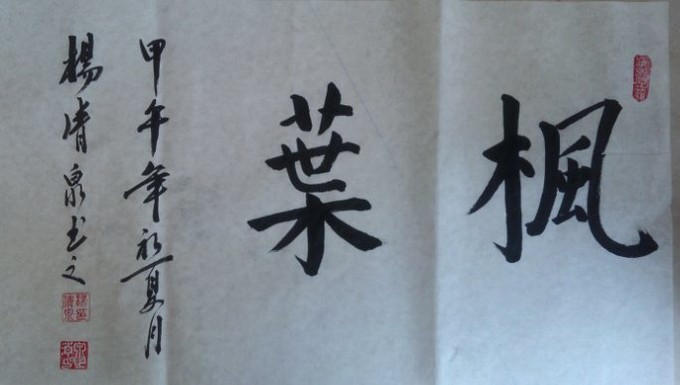 楓葉
甲午年初夏月
楊清泉书之